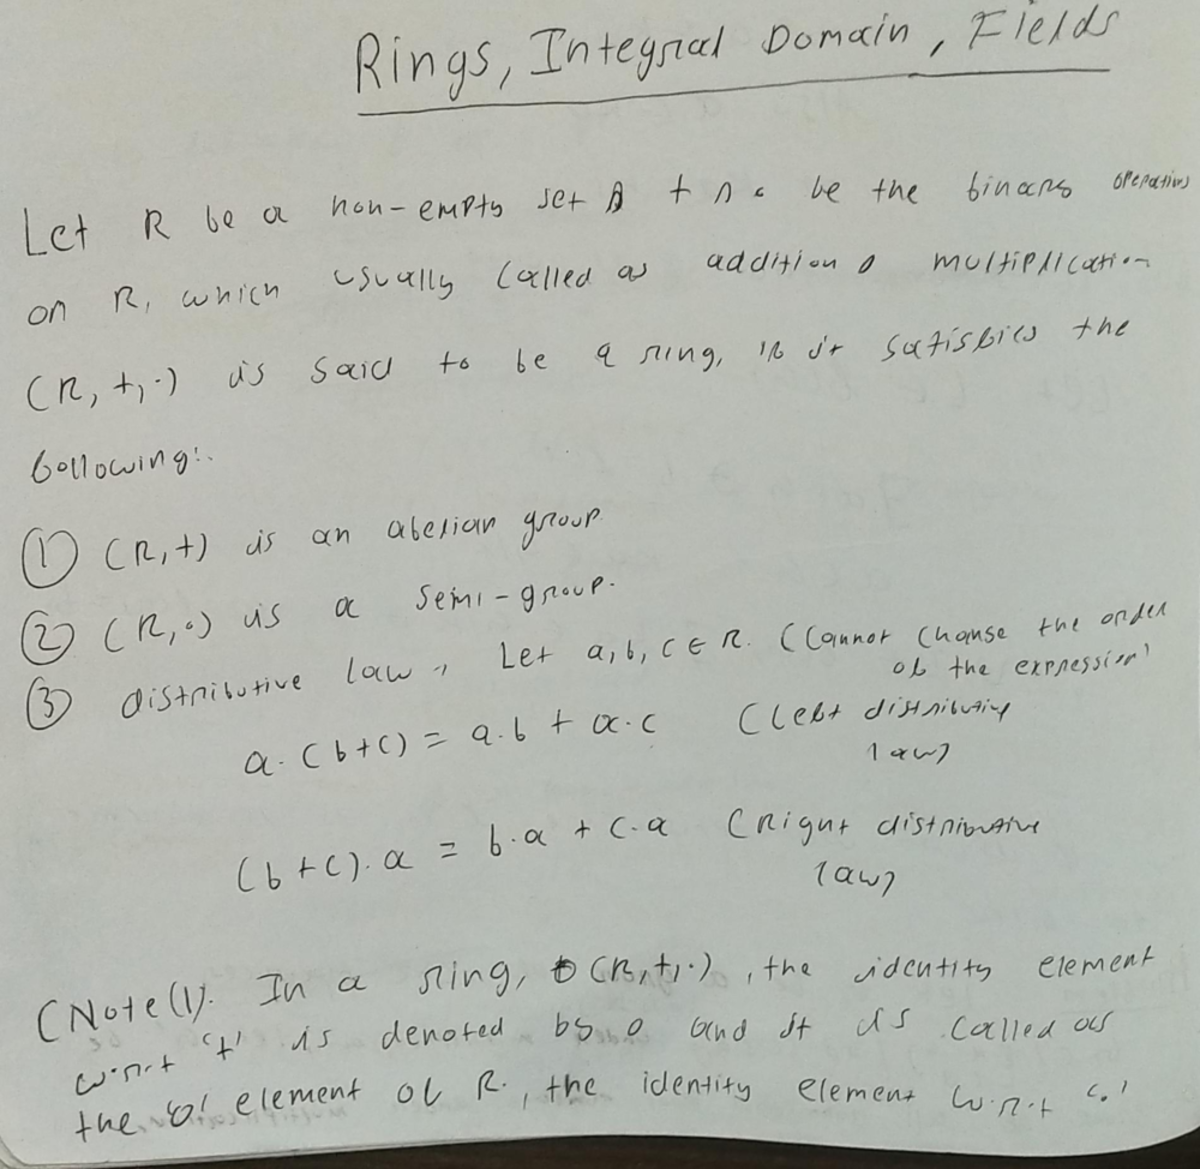 Rings, Integral Domain, Fields
Let R be a non-empty set & + & · be the binary operations
on R, which usually called as addition & multiplication
(R, +, ·) is said to be a ring, if it satisfies the
following:.
① (R, +) is an abelian group.
② (R, ·) is a semi-group.
③ distributive law, Let a, b, c ∈ R. (Cannot change the order
of the expression)
a. (b+c) = a.b + a.c (left distributive
law)
(b+c). a = b.a + c.a (Right distributive
law)
(Note(1). In a ring, (R, +, ·), the identity element
w.r.t '+' is denoted by 0 and it is called as
the '0' element of R., the identity element w.r.t '.'